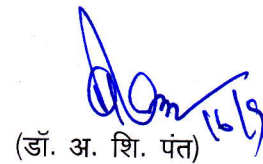 16/9
(डॉ. अ. शि. पंत)